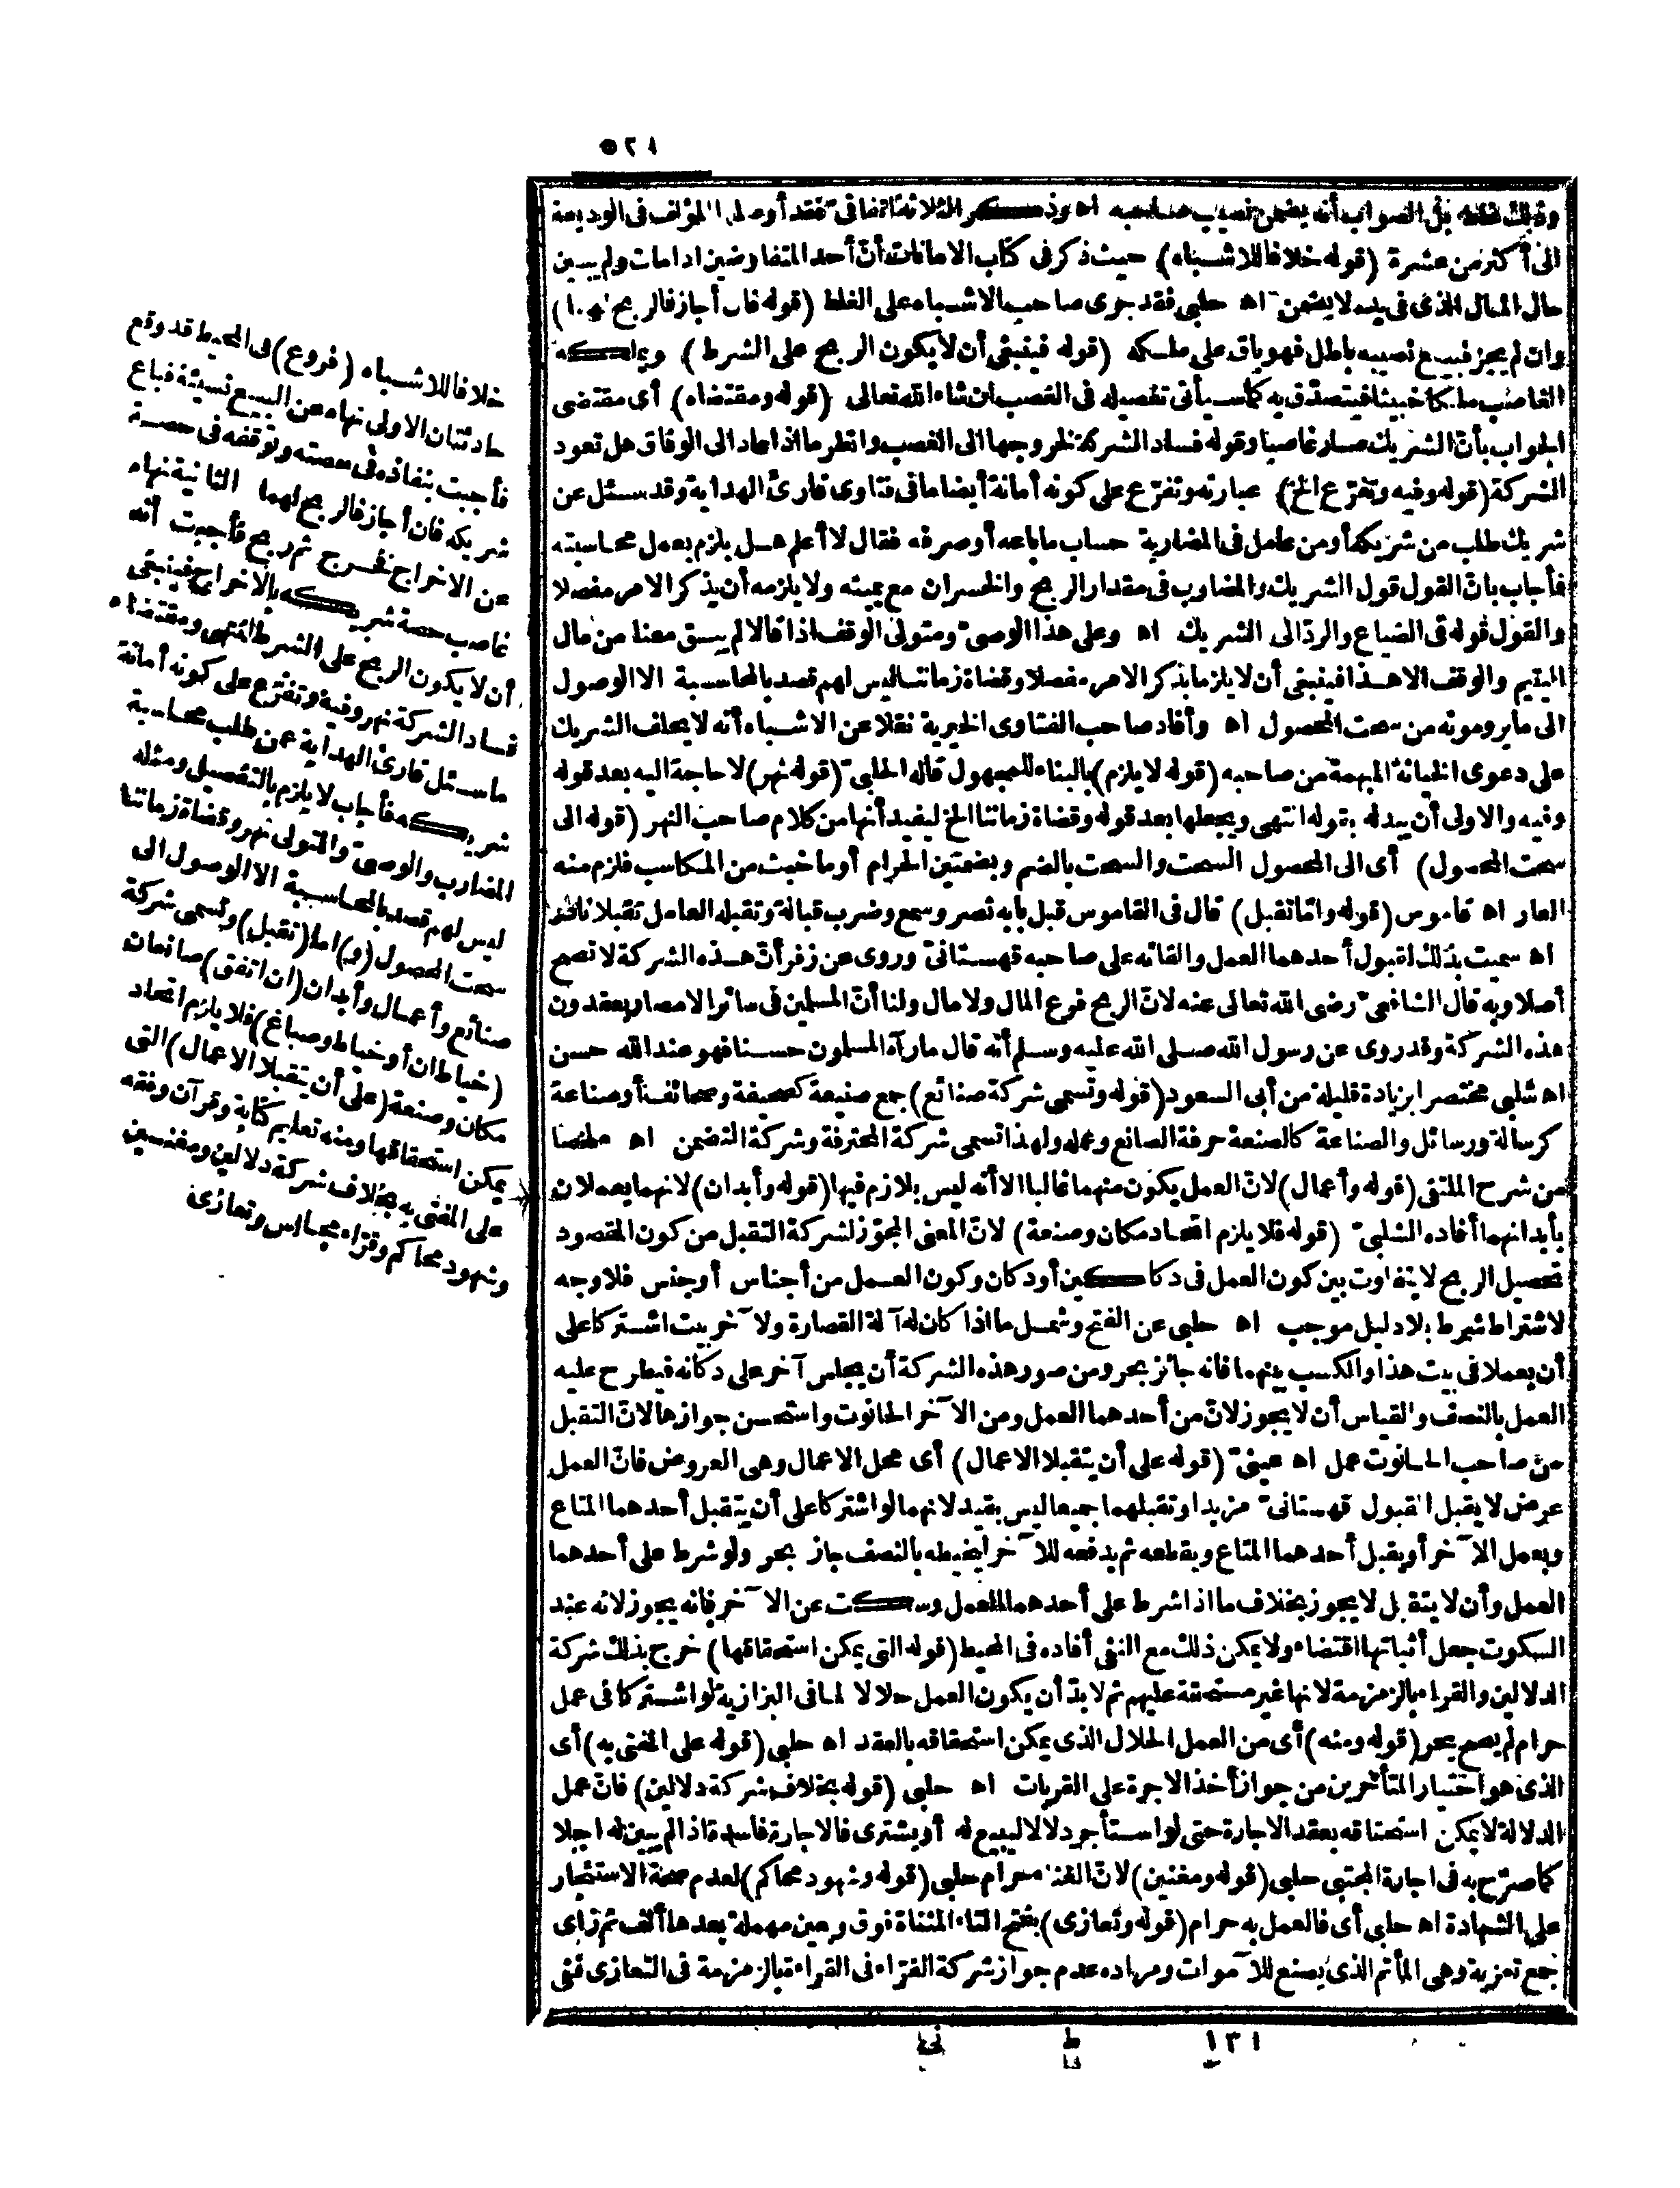 ٥٢١
وذلك غلط بل الصواب أنه يضمن نصيب صاحبه اه وذكر الثلاثة اتفاقى فقد أوصلها المؤلف فى الوديعة
الى أكثر من عشرة (قوله خلافا للاشباه) حيث ذكر فى كتاب الامانات أنّ أحد المتفاوضين اذا مات ولم يبين
حال المال الذى فى يده لا يضمن اه حلبى فقد جرى صاحب الاشباه على الغلط (قوله فان أجاز فالربح لهما)
وان لم يجز فبيع نصيبه باطل فهو باق على ملكه (قوله فينبغى أن لا يكون الربح على الشرط) ويملكه
الغاصب ملكا خبيثا فيتصدّق به كما سيأتى تفصيله فى الغصب ان شاء الله تعالى (قوله ومقتضاه) أى مقتضى
الجواب بأنّ الشريك صار غاصبا وقوله فساد الشركة لخروجها الى الغصب وانظر ما اذا عاد الى الوفاق هل تعود
الشركة (قوله وفيه وتفرّع الخ) عبارته وتفرّع على كونه أمانة أيضا ما فى فتاوى قارئ الهداية وقد سئل عن
شريك طلب من شريكه أو من عامل فى المضاربة حساب ما باعه أو صرفه فقال لا أعلم هل يلزم بعمل محاسبته
فأجاب بانّ القول قول الشريك والمضاوب فى مقدار الربح والخسران مع يمينه ولا يلزمه أن يذكر الامر مفصلا
والقول قوله فى الضياع والردّ الى الشريك اه وعلى هذا الوصىّ ومتولى الوقف اذا قالا لم يبق معنا من مال
اليتيم والوقف الا هذا فينبغى أن لا يلزما بذكر الامر مفصلا وقضاة زماننا ليس لهم قصد بالمحاسبة الا الوصول
الى ما يرومونه من سحت المحصول اه وأفاد صاحب الفتاوى الخيرية نقلا عن الاشباه أنه لا يحلف الشريك
على دعوى الخيانة المبهمة من صاحبه (قوله لا يلزم) بالبناء للمجهول قاله الحلبىّ (قوله نهر) لا حاجة اليه بعد قوله
وفيه والاولى أن يبدله بقوله انتهى ويجعلها بعد قوله وقضاة زماننا الخ ليفيد أنها من كلام صاحب النهر (قوله الى
سحت المحصول) أى الى المحصول السحت والسحت بالضم وبضمتين الحرام أو ما خبث من المكاسب فلزم منه
العار اه قاموس (قوله وامّا تقبل) قال فى القاموس قبل بابه نصر وسمع وضرب قبالة وتقبله العامل تقبلا نادر
اه سميت بذلك لقبول أحدهما العمل والقائه على صاحبه قهستانىّ وروى عن زفر أنّ هذه الشركة لا تصح
أصلا وبه قال الشافعىّ رضى الله تعالى عنه لانّ الربح فرع المال ولا مال ولنا أنّ المسلمين فى سائر الامصار يعقدون
هذه الشركة وقد روى عن رسول الله صلى الله عليه وسلم أنه قال ما رآه المسلمون حسنا فهو عند الله حسن
اه شلبى مختصرا بزيادة قليلة من أبى السعود (قوله وتسمى شركة صنائع) جمع صنيعة كصحيفة وصحائف أو صناعة
كرسالة ورسائل والصناعة كالصنعة حرفة الصانع وعمله ولهذا تسمى شركة المحترفة وشركة التضمن اه ملخصا
من شرح الملتقى (قوله وأعمال) لانّ العمل يكون منهما غالبا الا أنه ليس بلازم فيها (قوله وأبدان) لانهما يعملان
بأبدانهما أفاده الشلبىّ (قوله فلا يلزم اتحاد مكان وصنعة) لانّ المعنى المجوّز لشركة التقبل من كون المقصود
تحصيل الربح لا يتفاوت بين كون العمل فى دكاكين أو دكان وكون العمل من أجناس أو جنس فلا وجه
لاشتراط شرط بلا دليل موجب اه حلبى عن الفتح وشمل ما اذا كان له آلة القصارة ولآخر بيت اشتركا على
أن يعملا فى بيت هذا والكسب بينهما فانه جائز بحر ومن صور هذه الشركة أن يجلس آخر على دكانه فيطرح عليه
العمل بالنصف والقياس أن لا يجوز لانّ من أحدهما العمل ومن الآخر الحانوت واستحسن جوازها لانّ التقبل
من صاحب الحانوت عمل اه عينىّ (قوله على أن يتقبلا الاعمال) أى محل الاعمال وهى العروض فانّ العمل
عرض لا يقبل القبول قهستانىّ مزيدا وتقبلهما جميعا ليس بقيد لانهما لو اشتركا على أن يتقبل أحدهما المتاع
ويعمل الآخر أو يقبل أحدهما المتاع ويقطعه ثم يدفعه للآخر ليخيطه بالنصف جاز بحر ولو شرط على أحدهما
العمل وأن لا يتقبل لا يجوز بخلاف ما اذا شرط على أحدهما العمل وسكت عن الآخر فانه يجوز لانه عند
السكوت جعل أثباتها اقتضاء ولا يمكن ذلك مع النفى أفاده فى المحيط (قوله التى يمكن استحقاقها) خرج بذلك شركة
الدلالين والقراء بالزمزمة لانها غير مستحقة عليهم ثم لا بدّ أن يكون العمل حلالا لما فى البزازية لو اشتركا فى عمل
حرام لم يصح بحر (قوله ومنه) أى من العمل الحلال الذى يمكن استحقاقه بالعقد اه حلبى (قوله على المفتى به) أى
الذى هو اختيار المتأخرين من جواز أخذ الاجرة على القربات اه حلبى (قوله بخلاف شركة دلالين) فانّ عمل
الدلالة لا يمكن استحقاقه بعقد الاجارة حتى لو استأجر دلالا ليبيع له أو يشترى فالاجارة فاسدة اذا لم يبين له اجلا
كما صرّح به فى اجارة المجتبى حلبى (قوله ومغنين) لانّ الغناء حرام حلبى (قوله وشهود محاكم) لعدم صحة الاستئجار
على الشهادة اه حلبى أى فالعمل به حرام (قوله وتعازى) بفتح التاء المثناة فوق وعين مهملة بعدها ألف ثم زاى
جمع تعزية وهى المأتم الذى يصنع للاموات ومراده عدم جواز شركة القرّاء فى القراءة بالزمزمة فى التعازى ففى
خلافا للاشباه (فروع) فى المحيط قد وقع
حادثتان الاولى نهاه عن البيع نسيئة فباع
فأجبت بنفاذه فى حصته وتوقفه فى حصة
شريكه فان أجاز فالربح لهما الثانية نهاه
عن الاخراج فخرج ثم ربح فأجبت أنه
غاصب حصة شريكه بالاخراج فينبغى
أن لا يكون الربح على الشرط انتهى ومقتضاه
فساد الشركة نهر وفيه وتفرّع على كونه أمانة
ما سئل قارئ الهداية عن طلب محاسبة
شريكه فأجاب لا يلزم بالتفصيل ومثله
المضارب والوصىّ والمتولى نهر وقضاة زماننا
ليس لهم قصد بالمحاسبة الا الوصول الى
سحت المحصول (و) اما (تقبل) وتسمى شركة
صنائع وأعمال وأبدان (ان اتفق) صانعان
(خياطان أو خياط وصباغ) فلا يلزم اتحاد
مكان وصنعة (على أن يتقبلا الاعمال) التى
يمكن استحقاقها ومنه تعليم كتابة وقرآن وفقه
على المفتى به بخلاف شركة دلالين ومغنين
وشهود محاكم وقرّاء مجالس وتعازى
١٣١ ط نى